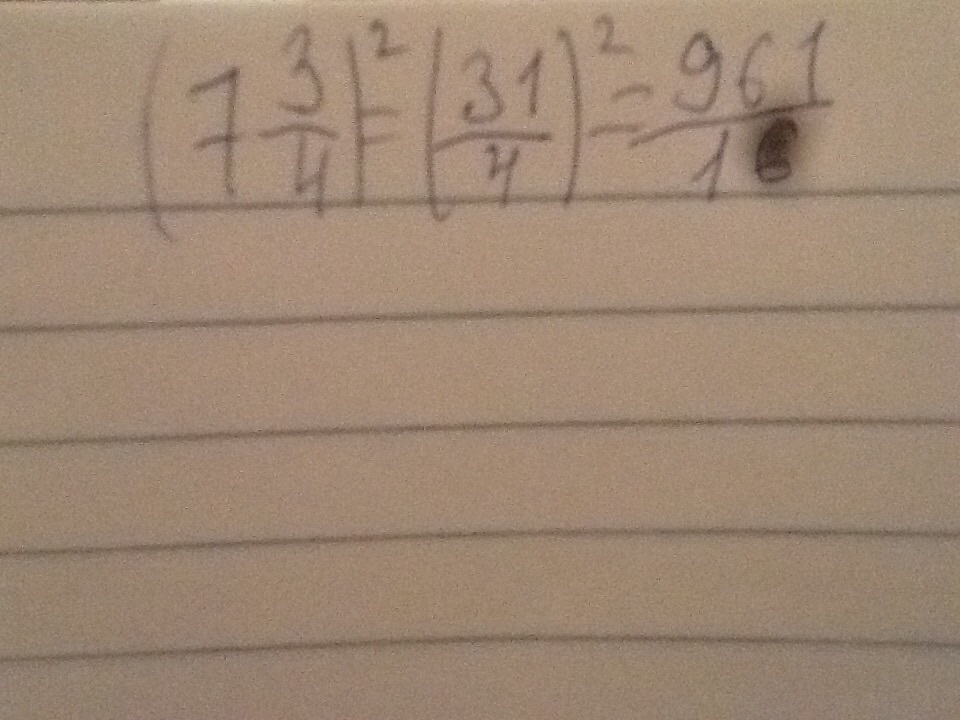 (7 3/4)² = (31/4)² = 961/16